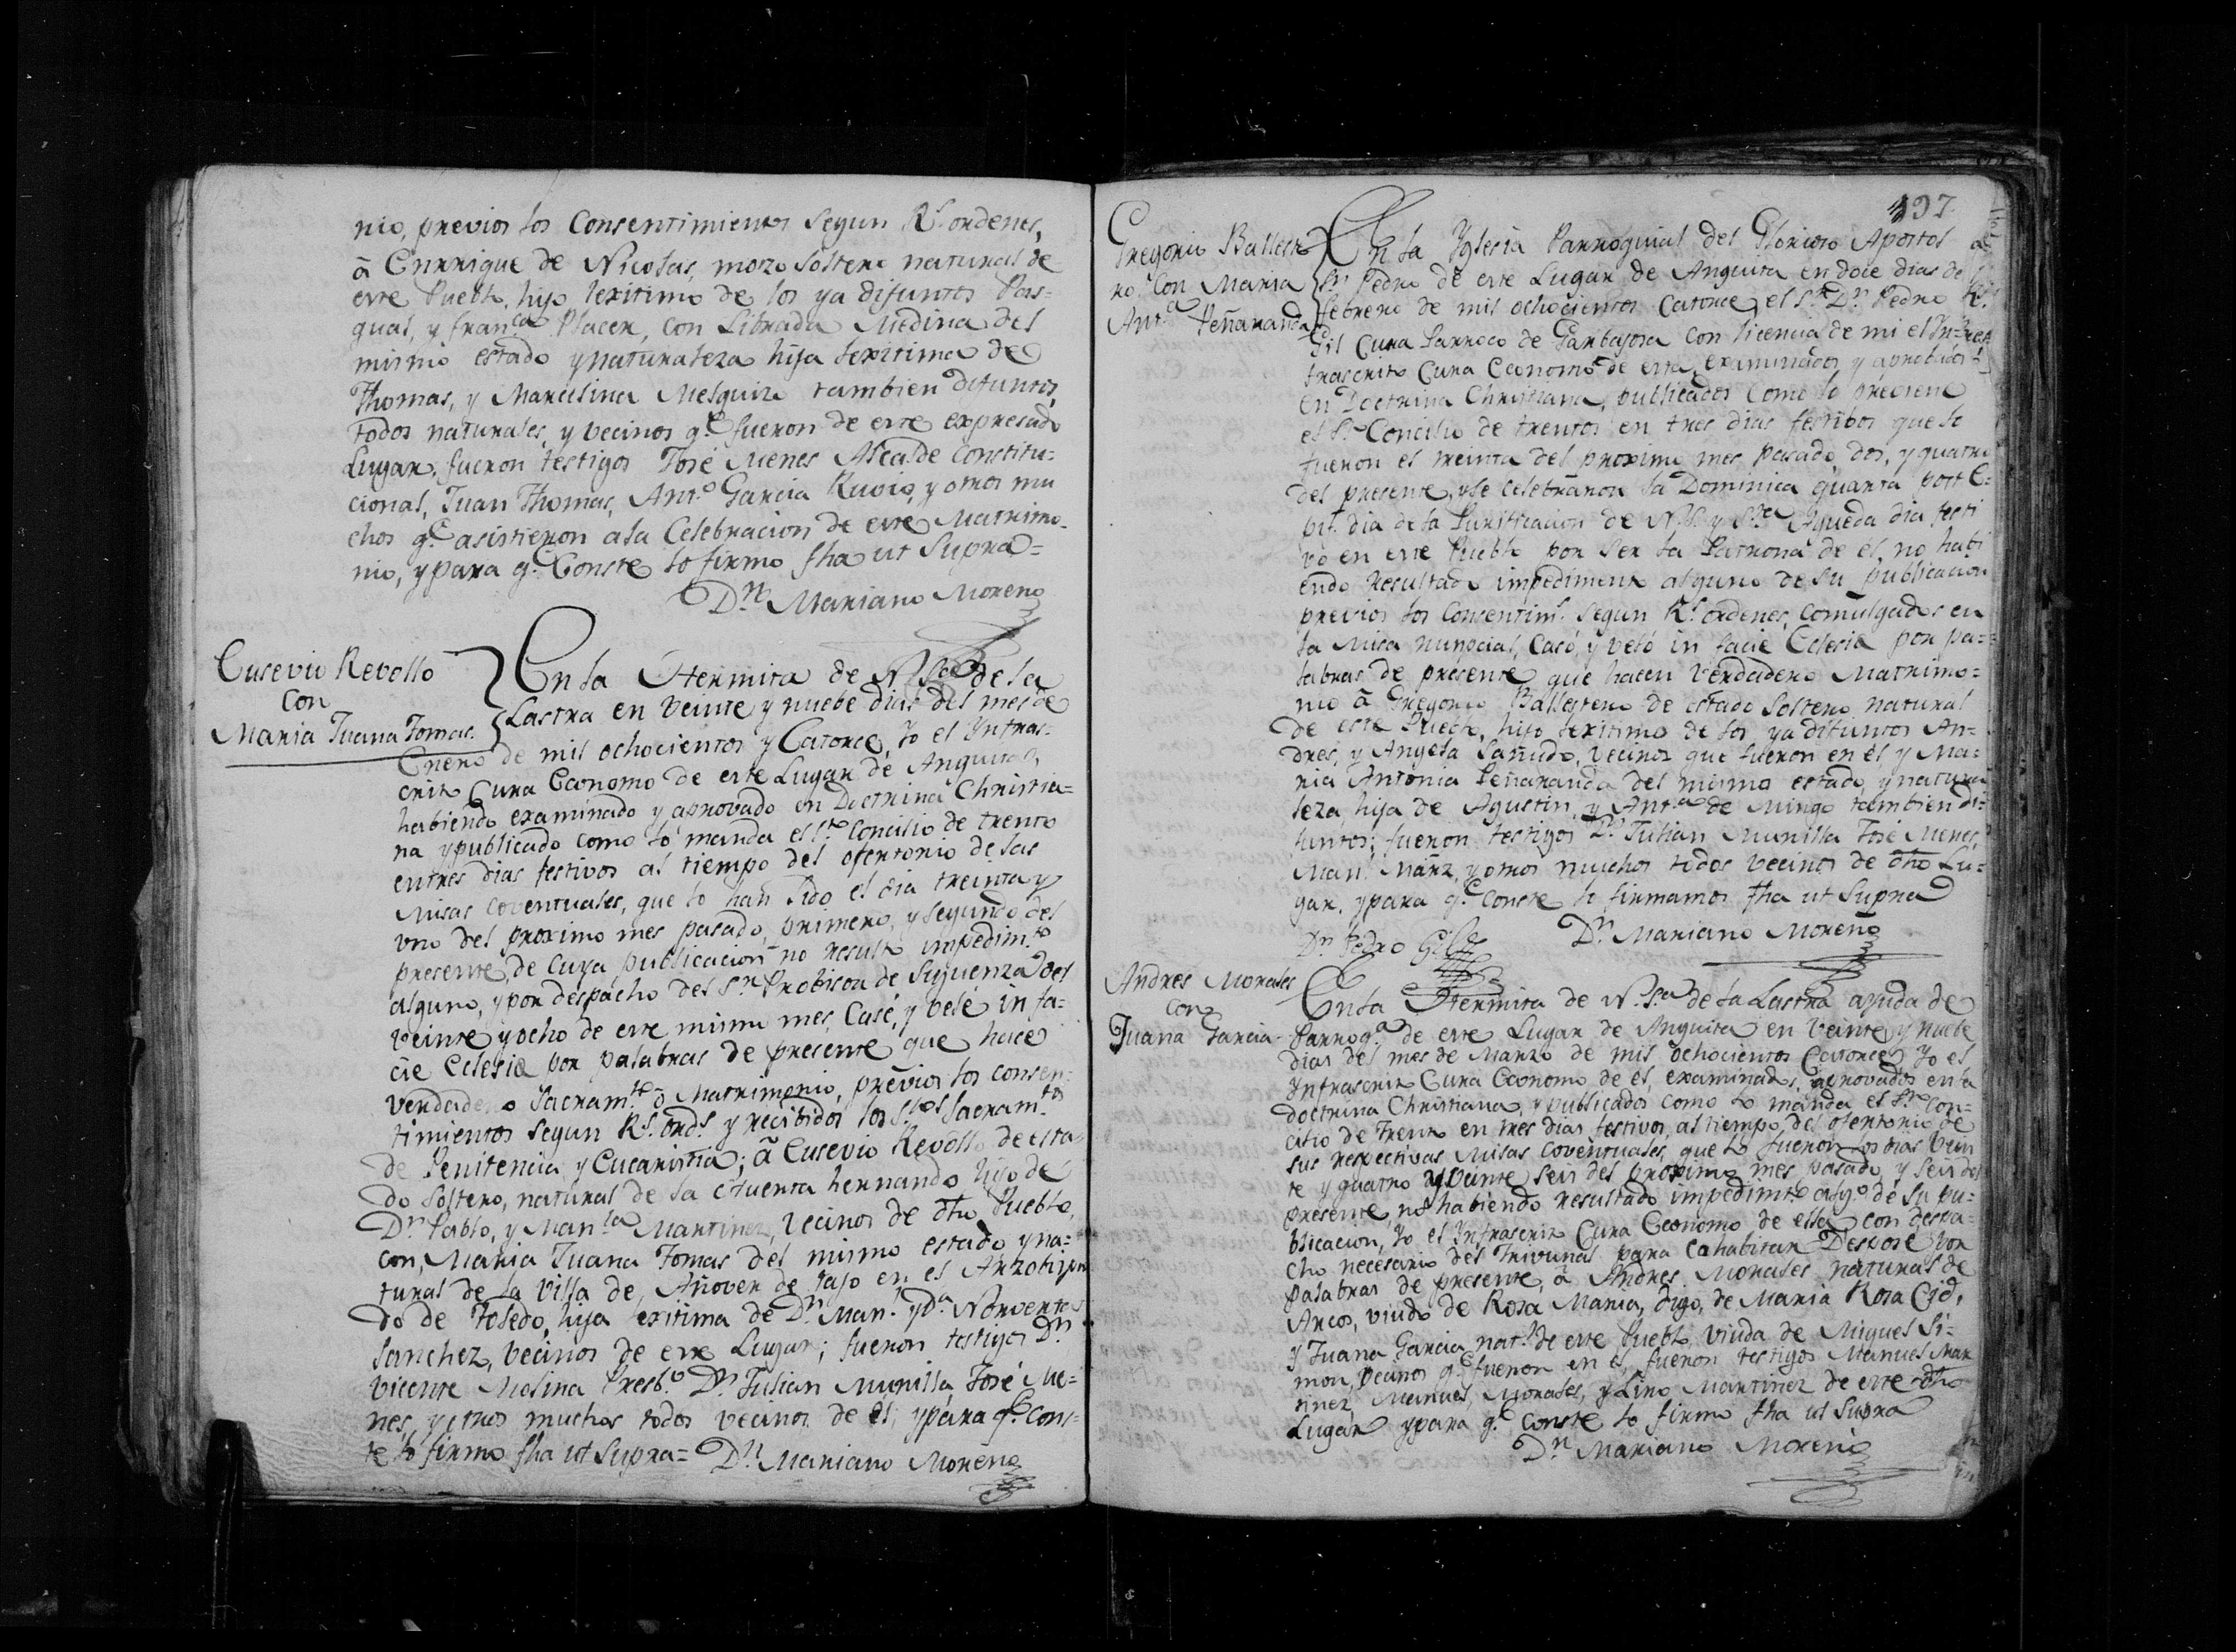 nio, previos los Consentimientos Segun Rs. ordenes,
â Enrrique de Nicolas, mozo soltero natural de
este Pueblo, hijo lexitimo de los ya difuntos Pas=
qual, y Franca. Placer, con Librada Medina del
mismo estado y naturaleza hija lexitima de
Thomas, y Marcelina Mesguiz tambien difuntos,
todos naturales, y vecinos qe. fueron de este expresado
Lugar, fueron testigos José Menes Alcalde Constitu=
cional, Juan Thomas, Anto. Garcia Ruvio, y otros mu
chos qe. asistieron ala Celebracion de este Matrimo-
nio, y para qe. Conste lo firmo fha ut Supra=
Dn. Mariano Moreno
Eusevio Revollo
con
Maria Juana Tomas.
En la Hermita de N. Sa. de la
Lastra en Veinte y nuebe dias del mes de
Enero de mil ochocientos y Catorce, Yo el Ynfras-
crito Cura Economo de este Lugar de Anguita,
habiendo examinado y aprovado en Doctrina Christia=
na y publicado como lo manda el Sto. Concilio de trento
entres dias festivos al tiempo del ofertorio de las
Misas Coventuales, que lo han sido el dia treinta y
uno del proximo mes pasado, primero, y segundo del
presente, de cuya publicacion no resulto impedimto.
alguno, y por despacho del Sr. Probisor de Siguenza del
veinte y ocho de este mismo mes, Casé, y velé in fa-
cie Eclesie por palabras de presente que hace
Verdadero Sacramto. ō Matrimonio, previos los consen-
timientos segun Rs. ords. y recibidos los Stos. Sacramtos.
de Penitencia y Eucaristia; â Eusevio Revollo de esta
do soltero, natural de la Huerta hernando hijo de
Dn. Pablo, y Manla. Martinez, Vecinos de dho Pueblo,
con Maria Juana Tomas del mismo estado y na=
tural de la Villa de Añover de tajo en el Arzobispa
do de Toledo, hija lexitima de Dn. Manl. y Da. Norverta
Sanchez, Vecinos de este Lugar; fueron testigos Dn.
Vicente Molina Presbo. Dn. Julian Munilla José Me=
nes, y otros muchos todos vecinos de el; y para qe. Cons-
te lo firmo fha ut Supra= Dn. Mariano Moreno
197
Gregorio Balleste
ro con Maria
Anta. Peñaranda
En la Yglesia Parroquial del Glorioso Apostol
Sn. Pedro de este Lugar de Anguita en doce dias de
febrero de mil ochocientos Catorce, el Sr. Dn. Pedro
Gil Cura Parroco de Garbajosa con licencia de mi el Yn=
frascrito Cura Economo de esta, examinados y aprobados
en Doctrina Christiana, publicados como lo previene
el Sto. Concilio de trento en tres dias festibos que lo
fueron el treinta del proximo mes pasado, dos, y quatro
del presente, y se celebraron la Dominica quarta post E=
pif. dia de la Purificacion de N. S. y Sta. Agueda dia festi
vo en este Pueblo por ser la Patrona de el, no habi
endo resultado impedimento alguno de su publicacion
previos los Consentims. segun Rs. ordenes, Comulgados en
la Misa nunpcial, Casó, y veló in facie Eclesia por pa=
labras de presente que hacen Verdadero Matrimo=
nio â Gregorio Ballestero de estado soltero natural
de este Pueblo, hijo lexitimo de los ya difuntos An=
dres, y Angela Sañudo, Vecinos que fueron en el, y Ma=
ria Antonia Peñaranda del mismo estado, y natura
leza hija de Agustin, y Anta. de Mingo tambien di=
funtos; fueron testigos Dn. Julian Munilla José Menes,
Manl. Marz. y otros muchos todos vecinos de dho Lu=
gar, y para qe. Conste lo firmamos fha ut Supra
Dn. Pedro Gil
Dn. Mariano Moreno
Andres Morales
con
Juana Garcia
En la Hermita de N. Sa. de la Lastra ayuda de
Parroqa. de este Lugar de Anguita en Veinte y nuebe
dias del mes de Marzo de mil ochocientos Catorce, Yo el
Ynfrascrito Cura Economo de el, examinados, aprovados en la
doctrina Christiana, y publicados como lo manda el Sto. Con=
cilio de Trento en tres dias festivos, al tiempo del ofertorio de
sus respectivas Misas Coventuales, que lo fueron los dias vein
te y quatro y veinte seis del proximo mes pasado, y seis del
presente, no habiendo resultado impedimto. algo. de su pu=
blicacion, Yo el Ynfrascrito Cura Economo de ella con despa=
cho necesario del Trivunal para cahabitar Desposé por
palabras de presente, â Andres Morales natural de
Arcos, viudo de Rosa Maria, digo, de Maria Rosa Cid,
y Juana Garcia natl. de este Pueblo, viuda de Miguel Si=
mon, vecinos qe. fueron en el, fueron testigos Manuel Mar
tinez, Manuel Morales, y Lino Martinez de este dho
Lugar y para qe. Conste lo firmo fha ut Supra
Dn. Mariano Moreno